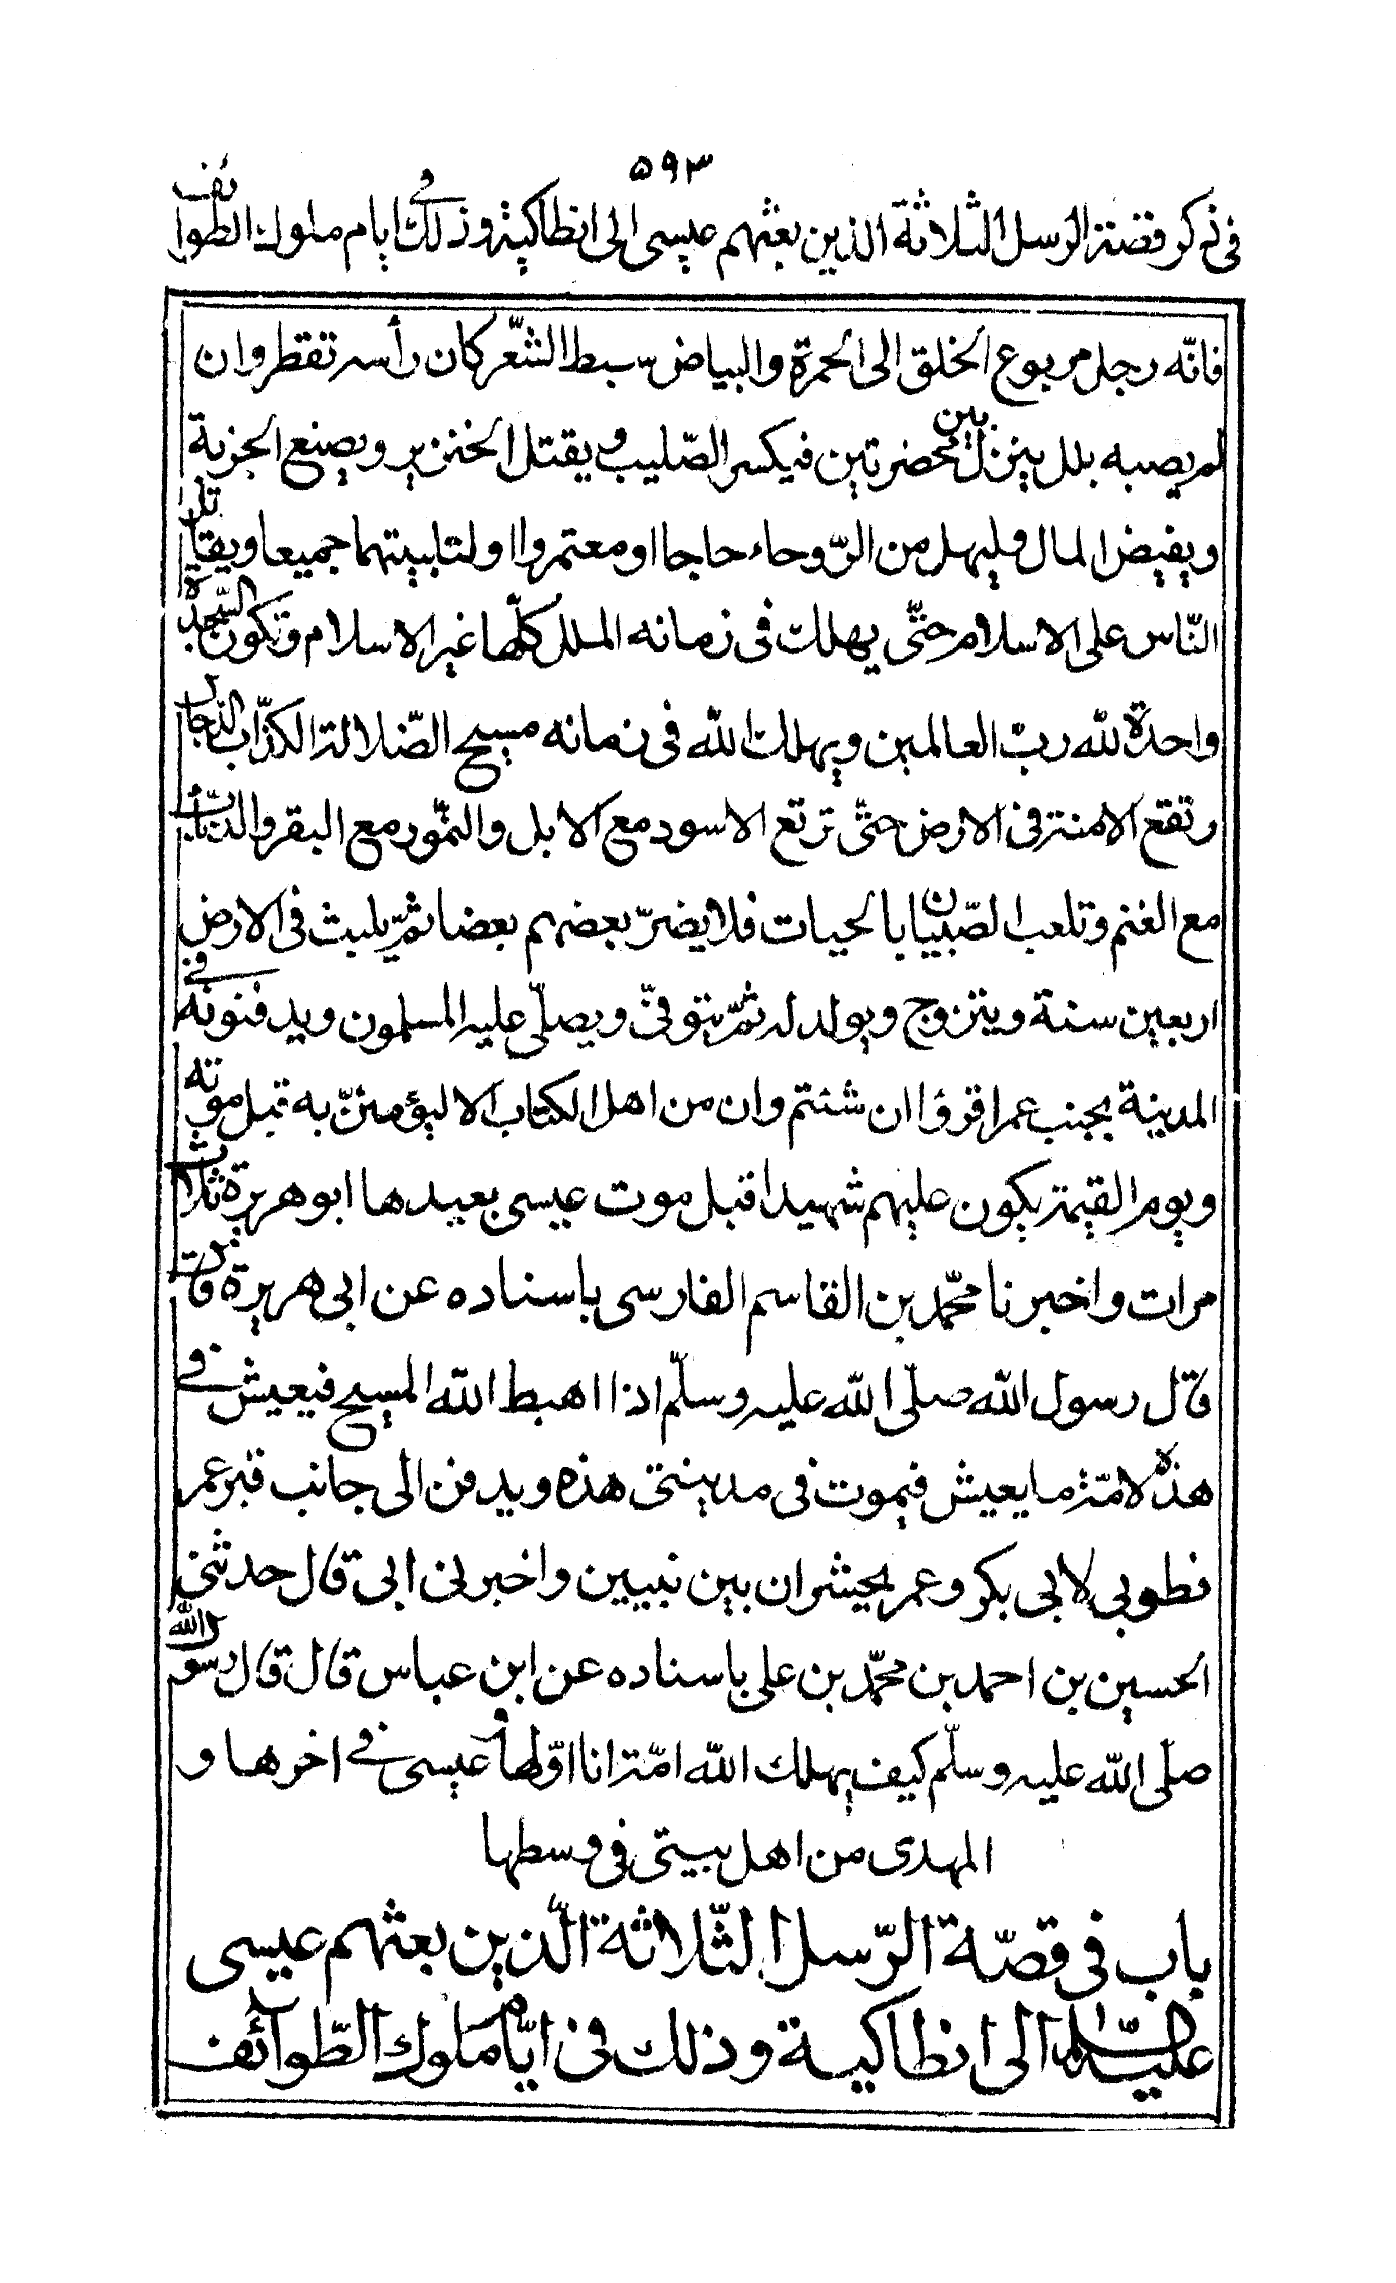 ٥٩٣
فى ذكر قصة الرسل الثلاثة الذين بعثهم عيسى الى انطاكية وذلك فى ايام ملوك الطوائف
فانّه رجل مربوع الخلق الى الحمرة والبياض سبط الشّعر كان رأسه تقطر وان
لم يصبه بلل ينزل بين مخضرتين فيكسر الصّليب ويقتل الخنزير ويضع الجزية
ويفيض المال وليهل من الرّوحاء حاجا او معتمروا او لتلبيتهما جميعا ويقاتل
النّاس على الاسلام حتّى يهلك فى زمانه الملل كلّها غير الاسلام وتكون السّجدة
واحدة لله ربّ العالمين ويهلك الله فى زمانه مسيح الضّلالة الكذّاب الدّجال
وتقع الامنة فى الارض حتّى ترتع الاسود مع الابل والنّمور مع البقر والذئاب
مع الغنم وتلعب الصّبيان بالحيات فلا يضرّ بعضهم بعضا ثمّ يلبث فى الارض
اربعين سنة ويتزوج ويولد له ثمّ يتوفّى ويصلّى عليه المسلمون ويدفنونه فى
المدينة بجنب عمر اقرؤا ان شئتم وان من اهل الكتاب الا ليؤمننّ به قبل موته
ويوم القيمة يكون عليهم شهيدا قبل موت عيسى بعيدها ابو هريرة ثلاث
مرات واخبرنا محمّد بن القاسم الفارسى باسناده عن ابى هريرة قال
قال رسول الله صلّى الله عليه وسلّم اذا اهبط الله المسيح فيعيش فى
هذه الامّة ما يعيش فيموت فى مدينتى هذه ويدفن الى جانب قبر عمر
فطوبى لابى بكر وعمر يحشران بين نبيين واخبرنى ابى قال حدثنى
الحسين بن احمد بن محمّد بن على باسناده عن ابن عباس قال قال رسول الله
صلّى الله عليه وسلّم كيف يهلك الله امّة انا اوّلها وعيسى فى اخرها و
المهدى من اهل بيتى فى وسطها
باب فى قصّة الرّسل الثّلاثة الّذين بعثهم عيسى
عليه السّلام الى انطاكية وذلك فى ايّام ملوك الطّوائف